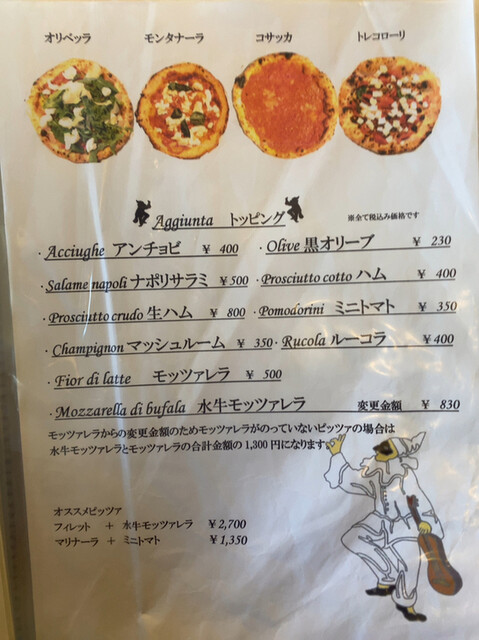 オリベッラ モンタナーラ コサッカ トレコローリ
Aggiunta トッピング ※全て税込み価格です
・Acciughe アンチョビ ¥ 400 ・Olive 黒オリーブ ¥ 230
・Salame napoli ナポリサラミ ¥500 ・Prosciutto cotto ハム ¥ 400
・Prosciutto crudo 生ハム ¥ 800 ・Pomodorini ミニトマト ¥ 350
・Champignon マッシュルーム ¥ 350 ・Rucola ルーコラ ¥400
・Fior di latte モッツァレラ ¥ 500
・Mozzarella di bufala 水牛モッツァレラ 変更金額 ¥ 830
モッツァレラからの変更金額のためモッツァレラがのっていないピッツァの場合は
水牛モッツァレラとモッツァレラの合計金額の1,300円になります。
オススメピッツァ
フィレット + 水牛モッツァレラ ¥2,700
マリナーラ + ミニトマト ¥1,350